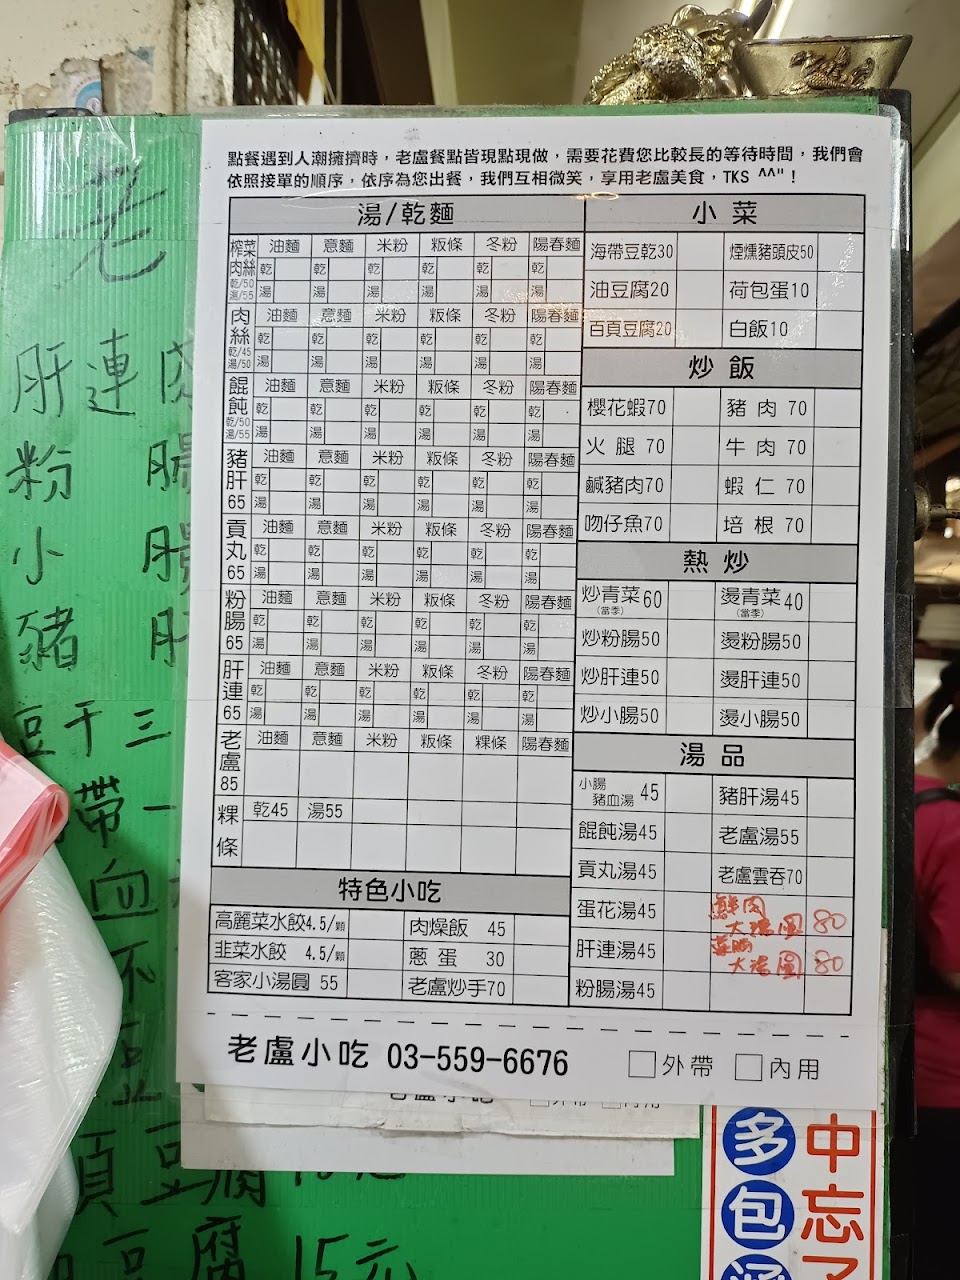 點餐遇到人潮擁擠時，老盧餐點皆現點現做，需要花費您比較長的等待時間，我們會
依照接單的順序，依序為您出餐，我們互相微笑，享用老盧美食，TKS ^^"！
湯/乾麵
榨菜肉絲 乾/50 湯/55 油麵 意麵 米粉 粄條 冬粉 陽春麵
乾 乾 乾 乾 乾 乾
湯 湯 湯 湯 湯 湯
肉絲 乾/45 湯/50 油麵 意麵 米粉 粄條 冬粉 陽春麵
乾 乾 乾 乾 乾 乾
湯 湯 湯 湯 湯 湯
餛飩 乾/50 湯/55 油麵 意麵 米粉 粄條 冬粉 陽春麵
乾 乾 乾 乾 乾 乾
湯 湯 湯 湯 湯 湯
豬肝 65 油麵 意麵 米粉 粄條 冬粉 陽春麵
乾 乾 乾 乾 乾 乾
湯 湯 湯 湯 湯 湯
貢丸 65 油麵 意麵 米粉 粄條 冬粉 陽春麵
乾 乾 乾 乾 乾 乾
湯 湯 湯 湯 湯 湯
粉腸 65 油麵 意麵 米粉 粄條 冬粉 陽春麵
乾 乾 乾 乾 乾 乾
湯 湯 湯 湯 湯 湯
肝連 65 油麵 意麵 米粉 粄條 冬粉 陽春麵
乾 乾 乾 乾 乾 乾
湯 湯 湯 湯 湯 湯
老盧 85 油麵 意麵 米粉 粄條 粿條 陽春麵
粿條 乾45 湯55
特色小吃
高麗菜水餃4.5/顆 肉燥飯 45
韭菜水餃 4.5/顆 蔥蛋 30
客家小湯圓 55 老盧炒手70
小菜
海帶豆乾30 煙燻豬頭皮50
油豆腐20 荷包蛋10
百頁豆腐20 白飯10
炒飯
櫻花蝦70 豬肉 70
火腿 70 牛肉 70
鹹豬肉70 蝦仁 70
吻仔魚70 培根 70
熱炒
炒青菜(當季)60 燙青菜(當季)40
炒粉腸50 燙粉腸50
炒肝連50 燙肝連50
炒小腸50 燙小腸50
湯品
小腸豬血湯 45 豬肝湯45
餛飩湯45 老盧湯55
貢丸湯45 老盧雲吞70
蛋花湯45 鮮肉大湯圓 80
肝連湯45 大湯圓 80
粉腸湯45
老盧小吃 03-559-6676 □外帶 □內用
老
肝連肉
粉腸
小腸
豬肝
豆干三
帶一
血
不
豆
頁豆腐
豆腐15元
多包
中忘了